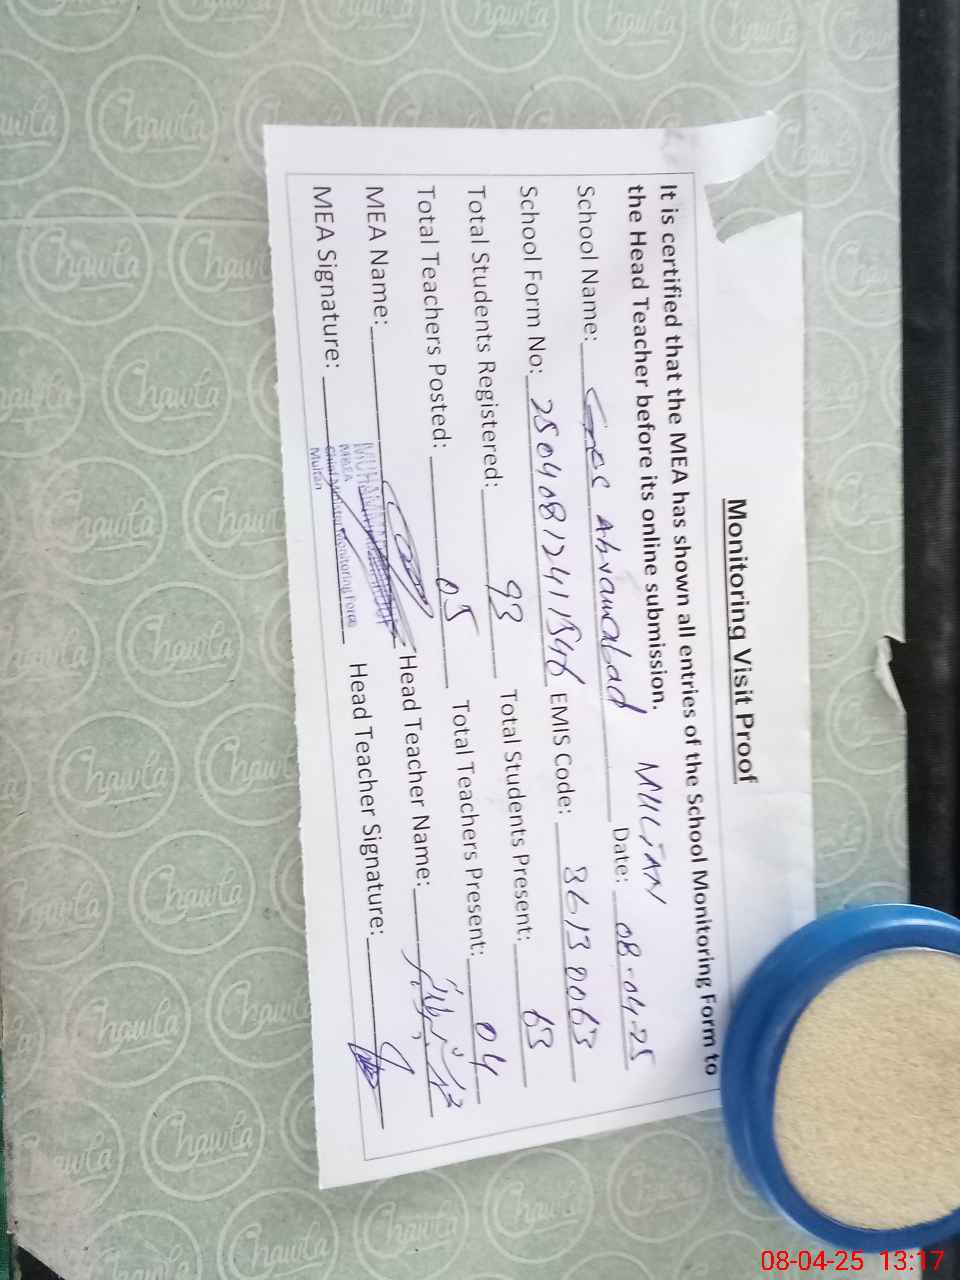 Monitoring Visit Proof
It is certified that the MEA has shown all entries of the School Monitoring Form to
the Head Teacher before its online submission.
MULTAN
School Name: Abvamabad Date: 08-04-25
School Form No: 25040812411546 EMIS Code: 36130063
Total Students Registered: 93 Total Students Present: 63
Total Teachers Posted: 05 Total Teachers Present: 04
MEA Name: Head Teacher Name:
MEA Signature: Head Teacher Signature:
MEA
Chief Minister Monitoring Force
Multan
Chawla
08-04-25 13:17